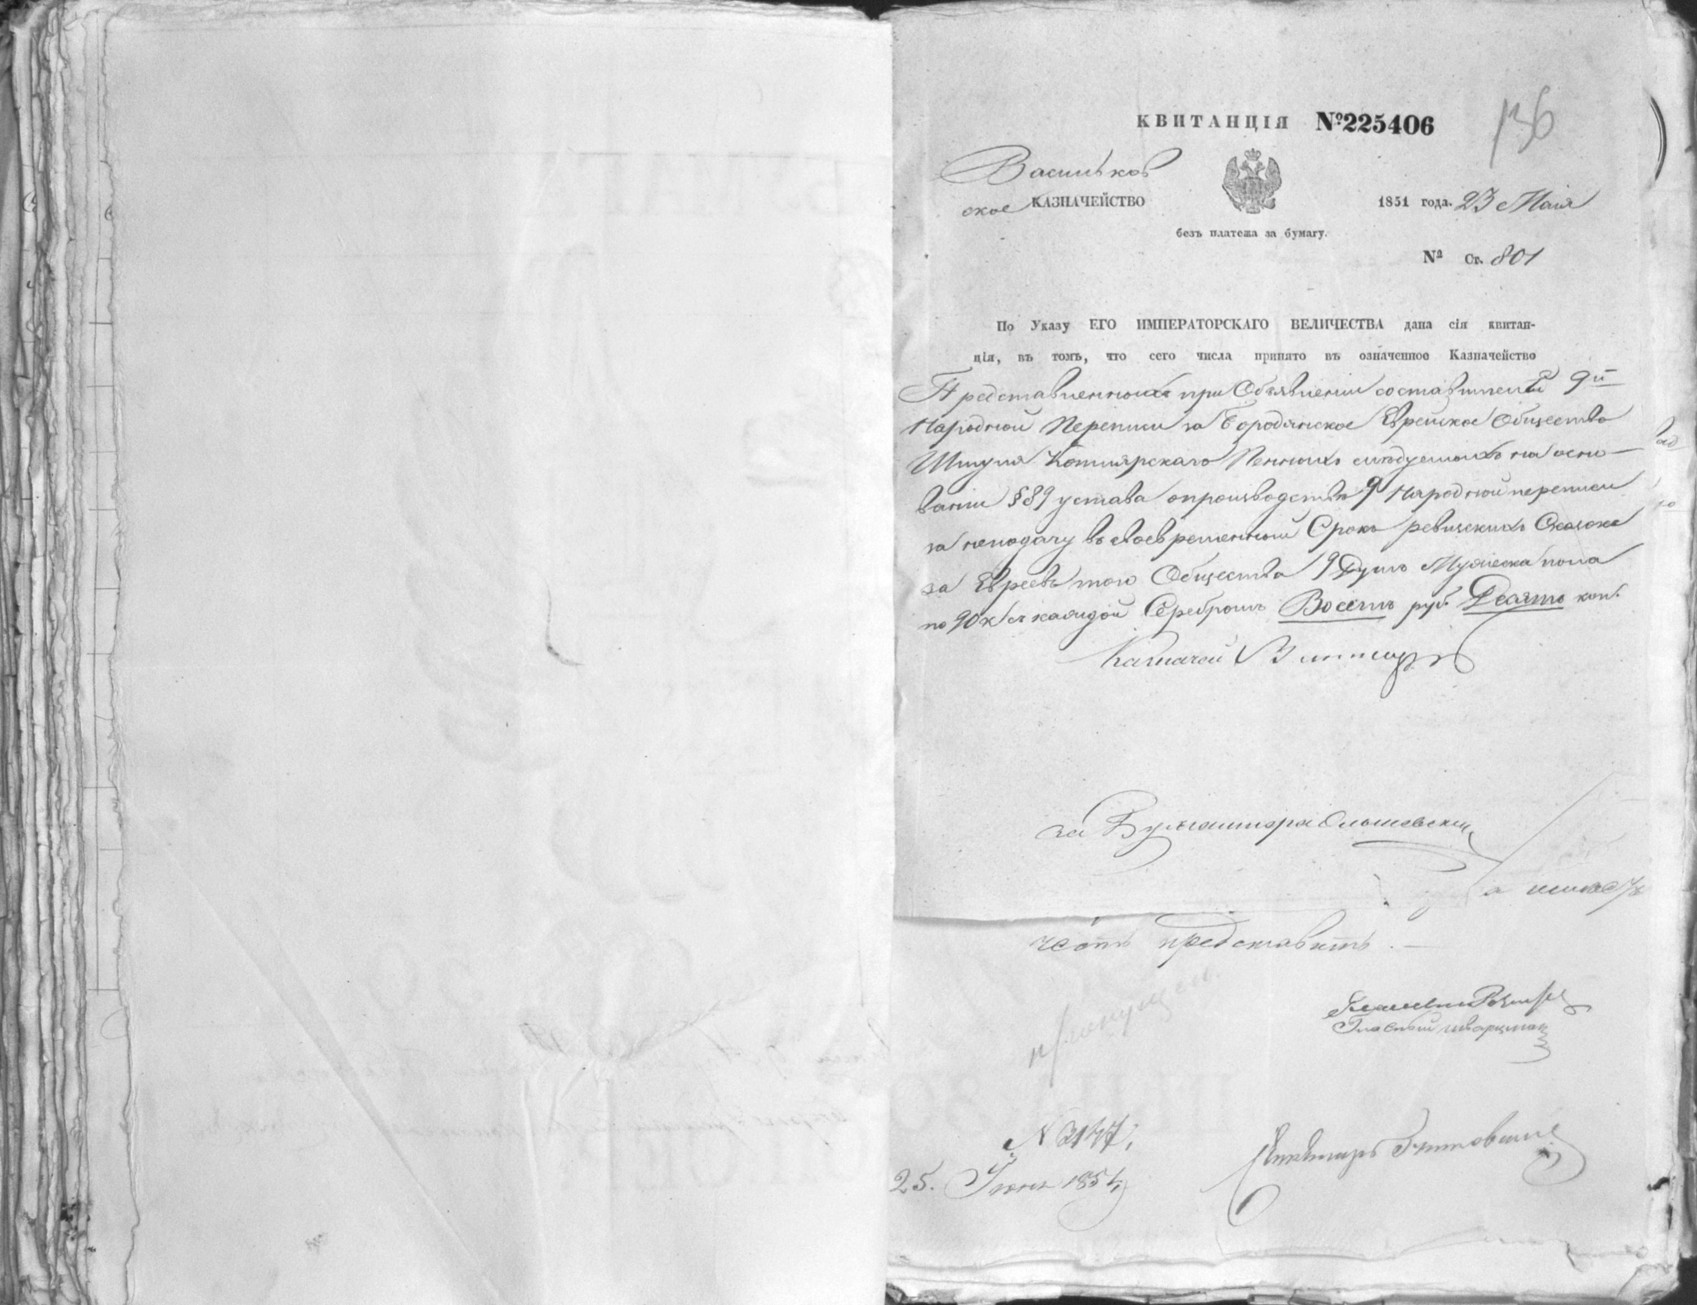 136
КВИТАНЦІЯ №225406
Васильков
ское КАЗНАЧЕЙСТВО
1851 года. 23 Маія
безъ платежа за бумагу.
№ Ст. 801
По Указу ЕГО ИМПЕРАТОРСКАГО ВЕЛИЧЕСТВА дана сія квитан-
ція, въ томъ, что сего числа принято въ означенное Казначейство
Представленныхъ при Объявленіи 9й
Народной Переписи за Бородянское Еврейское Общество
Шмуля Котлярскаго Пенныхъ следуемыхъ на осно-
ваніи §89 устава опроизводстве 9 Народной переписи
за неподачу въ своевременный Срокъ ревизскихъ Сказокъ
за Евреевъ того Общества 9 Душъ Мужеска пола
по 90 к съ каждой Серебромъ Восемь руб. Десять коп.
Казначей
за Бухгалтера Ольшевскій
честь представить. —
N 3147.
25. Іюня 1851